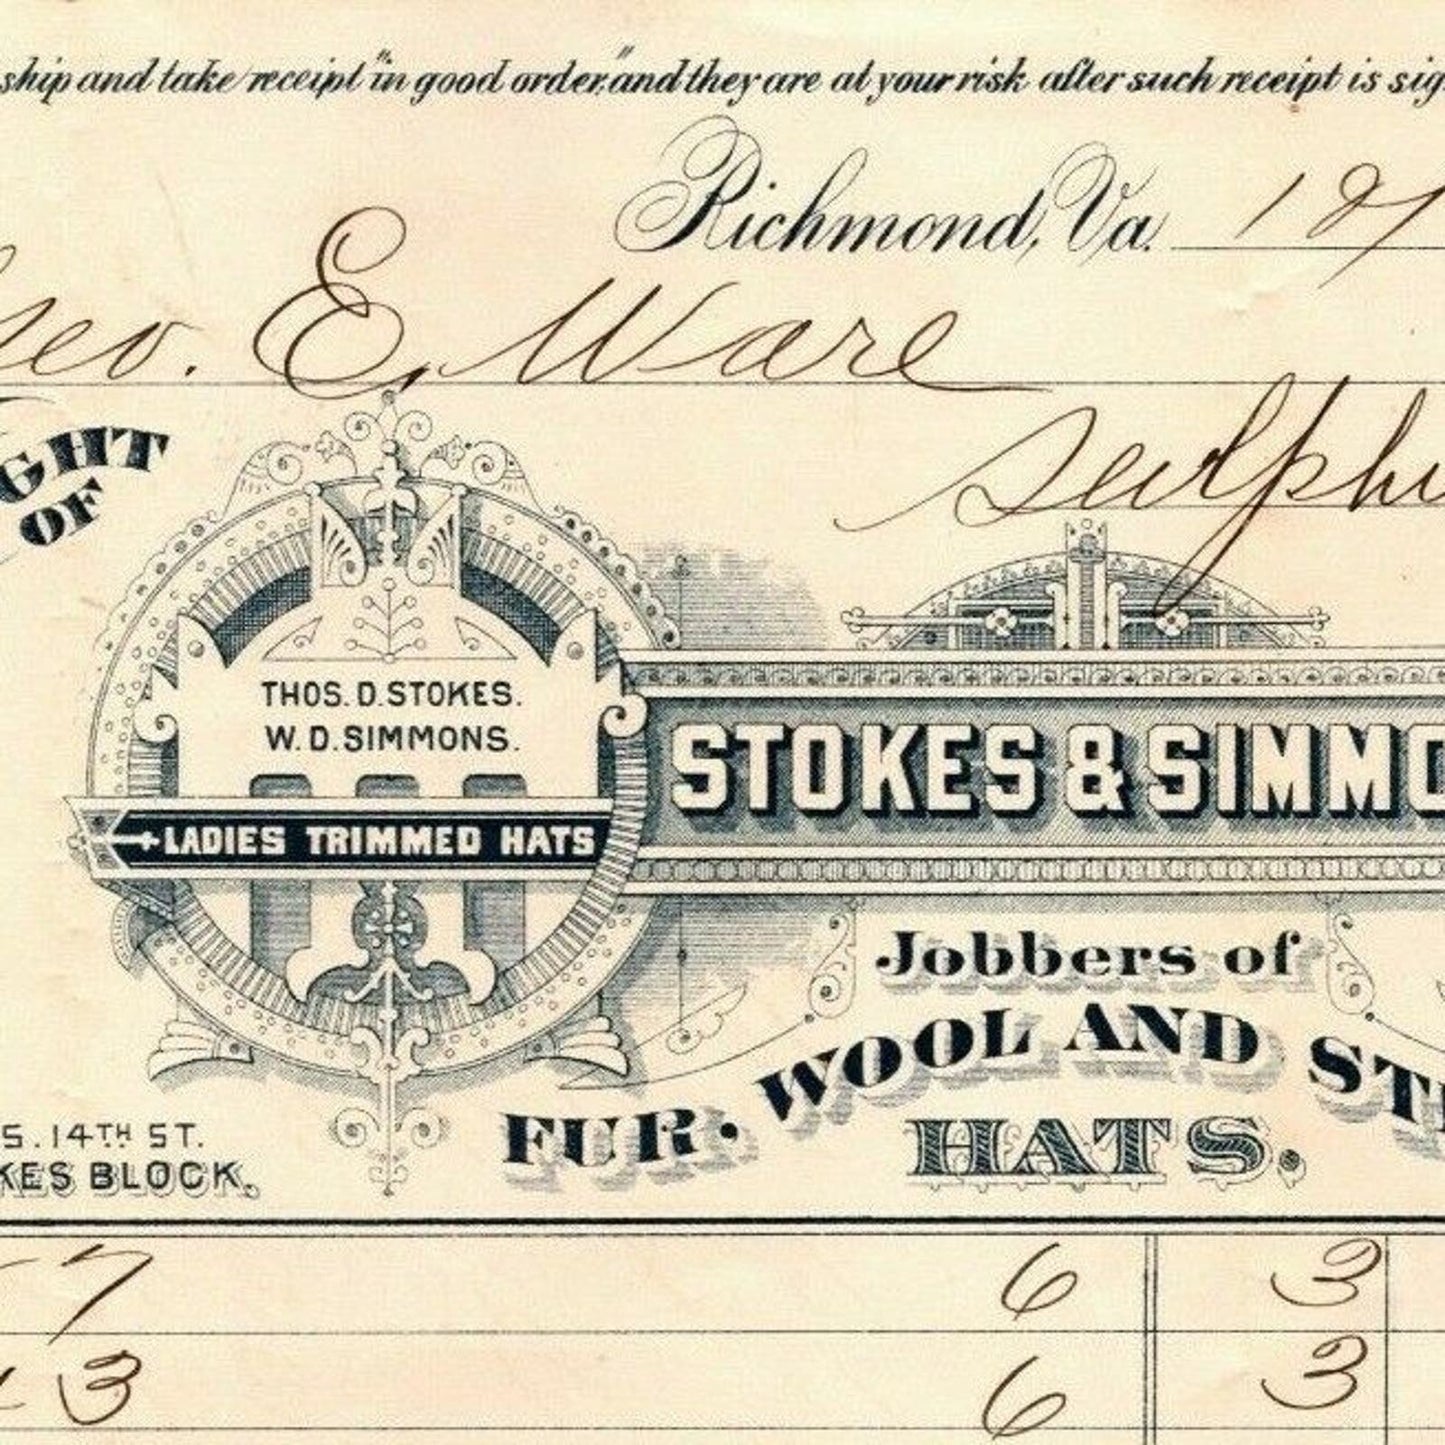 ship and take receipt "in good order," and they are at your risk after such receipt is sig
Richmond, Va.
Geo. E. Ware
Sulphu
GHT
OF
THOS. D. STOKES.
W. D. SIMMONS.
LADIES TRIMMED HATS
STOKES & SIMMO
Jobbers of
FUR. WOOL AND ST
HATS.
S. 14TH ST.
KES BLOCK.
7 6 3
3 6 3